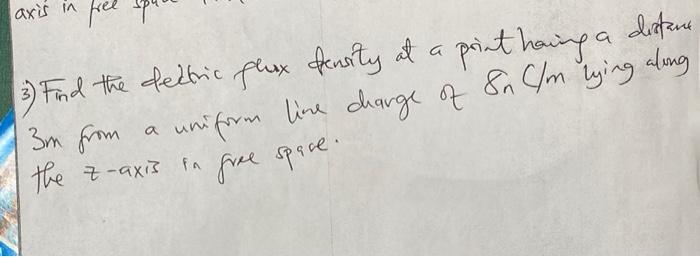 axis in free
3) Find the electric flux density at a point having a distance
3m from a uniform line charge of 8n C/m lying along
the z-axis in free space.